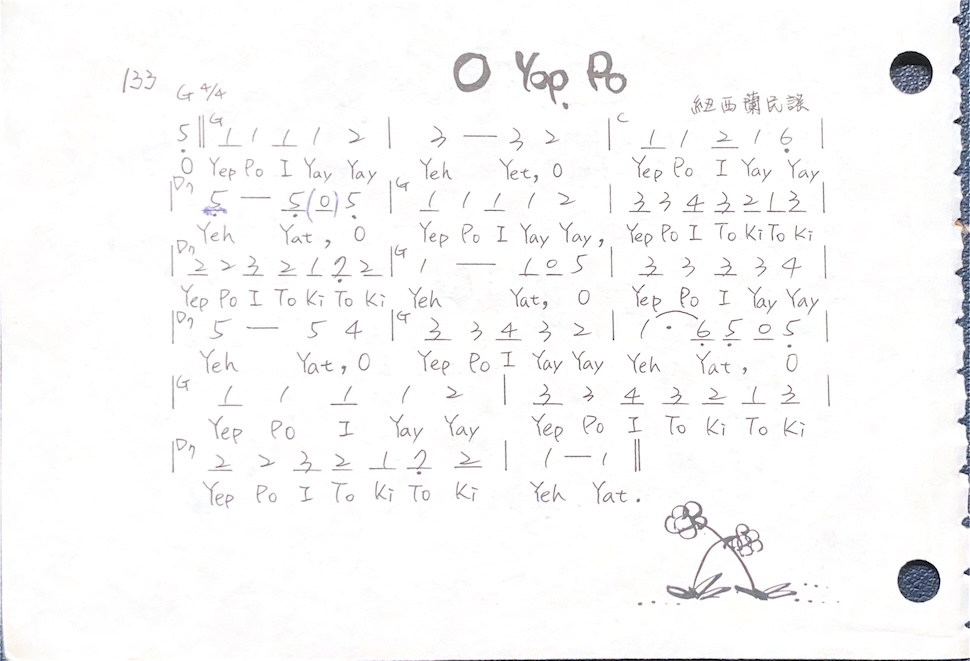 133 O Yep Po
G 4/4 紐西蘭民謠
5 ‖ G 1 1 1 1 2 | 3 — 3 2 | C 1 1 2 1 6 |
O Yep Po I Yay Yay Yeh Yet, O Yep Po I Yay Yay
| D7 5 — 5 (0) 5 | G 1 1 1 1 2 | 3 3 4 3 2 1 3 |
Yeh Yat, O Yep Po I Yay Yay, Yep Po I To Ki To Ki
| D7 2 2 3 2 1 7 2 | G 1 — 1 0 5 | 3 3 3 3 4 |
Yep Po I To Ki To Ki Yeh Yat, O Yep Po I Yay Yay
| D7 5 — 5 4 | G 3 3 4 3 2 | 1 · 6 5 0 5 |
Yeh Yat, O Yep Po I Yay Yay Yeh Yat, O
| G 1 1 1 1 2 | 3 3 4 3 2 1 3 |
Yep Po I Yay Yay Yep Po I To Ki To Ki
| D7 2 2 3 2 1 7 2 | 1 — 1 ‖
Yep Po I To Ki To Ki Yeh Yat.